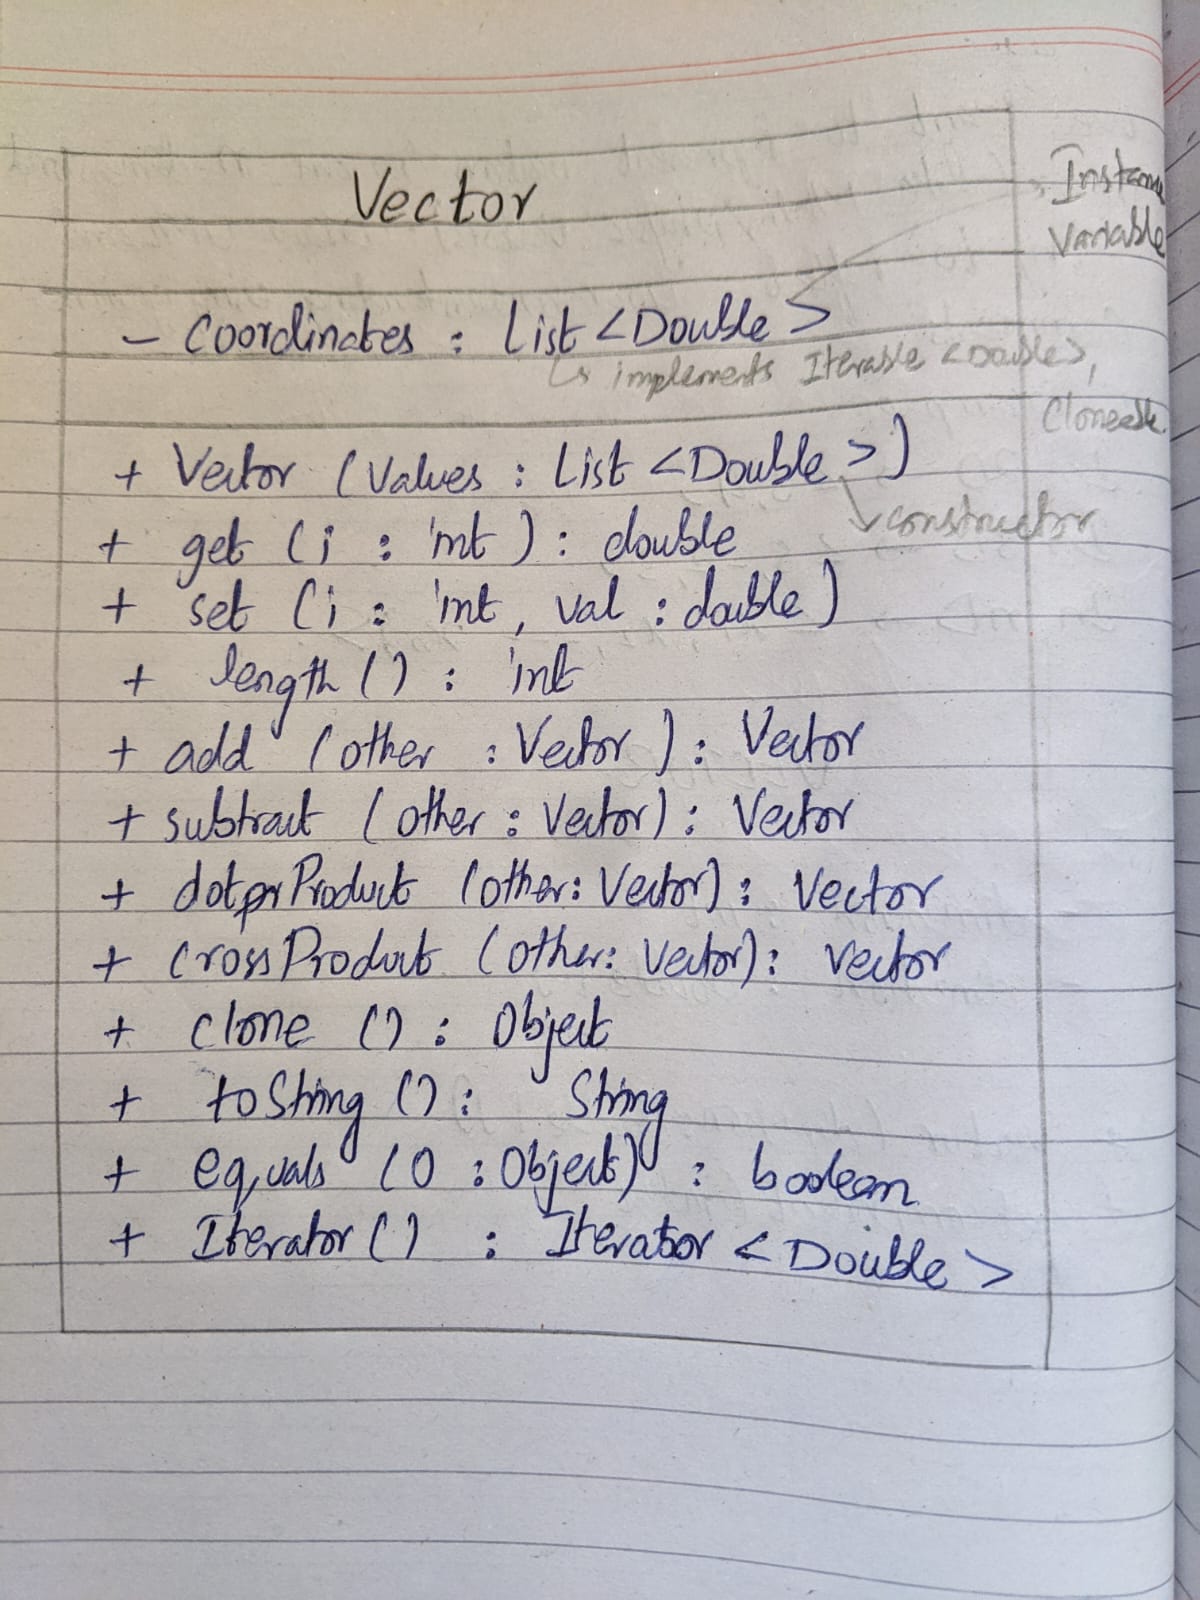 Vector
Instance
Variable
- Coordinates : List <Double>
↳ implements Iterable <Double>,
Cloneable
+ Vector (Values : List <Double>)
constructor
+ get (i : int) : double
+ set (i : int, val : double)
+ length () : int
+ add (other : Vector) : Vector
+ subtract (other : Vector) : Vector
+ dotprProduct (other: Vector) : Vector
+ CrossProduct (other: Vector) : Vector
+ clone () : Object
+ toString () : String
+ equals (O : Object) : boolean
+ Iterator () : Iterator <Double>